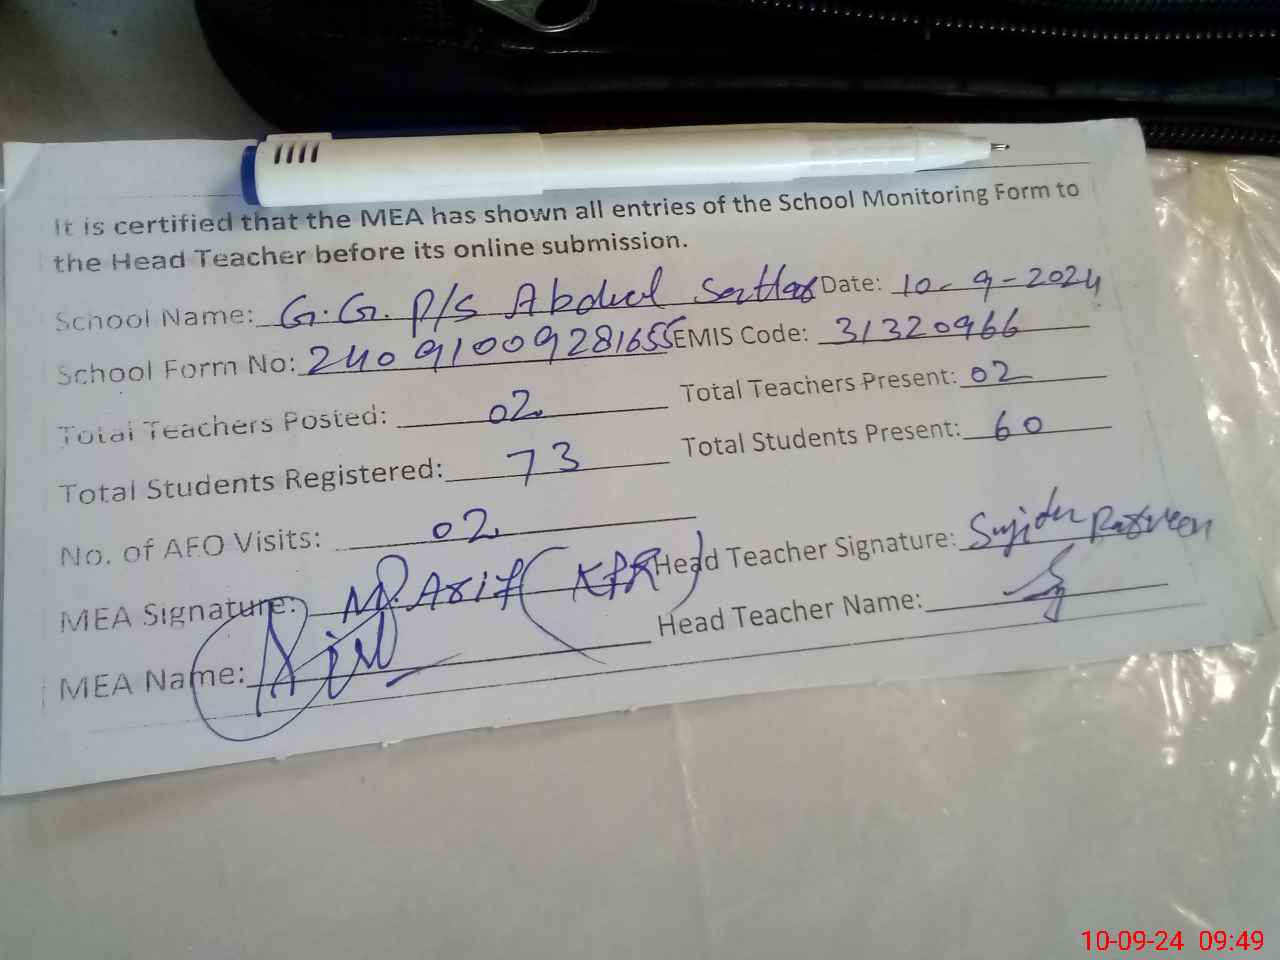 It is certified that the MEA has shown all entries of the School Monitoring Form to
the Head Teacher before its online submission.
School Name: G.G. P/S Abdul Sattar Date: 10-9-2024
School Form No: 24091009281655 EMIS Code: 31320966
Total Teachers Posted: 02 Total Teachers Present: 02
Total Students Registered: 73 Total Students Present: 60
No. of AEO Visits: 02
MEA Signature: M. Arif (KPR) Head Teacher Signature: Parveen
MEA Name: Head Teacher Name:
10-09-24 09:49